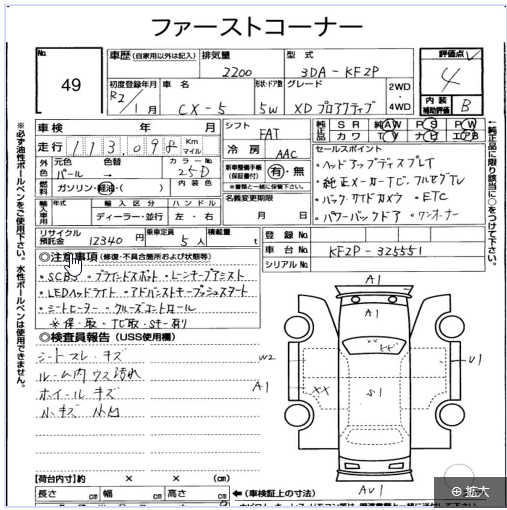 ファーストコーナー
No.
49
車歴 (自家用以外は記入)
排気量
2200
型式
3DA-KF2P
評価点
4
初度登録年月
R2/1月
車名
CX-5
形状・ドア数
5W
グレード
XD プロアクティブ
2WD・4WD
内装補助評価
B
車検 年 月
シフト
FAT
純正品
SR AW PS PW
カワ TV ナビ エアB
走行 113,098 Km マイル
冷房
AAC
セールスポイント
・ヘッドアップディスプレイ
・純正メーカーナビ・フルセグTV
・バック・サイドカメラ ・ETC
・パワーバックドア ・ワンオーナー
外色
元色
パール
色替
→
カラーNo.
25D
内装色
燃料
ガソリン・軽油・( )
新車整備手帳(保証書付)
有・無
※書類と一緒に保管下さい。
名義変更期限
月 日
輸入車用
年式
輸入区分
ディーラー・並行
ハンドル
左・右
リサイクル預託金
12340円
乗車定員
5人
積載量
t
登録No.
車台No. KF2P-325551
シリアルNo.
◎注意事項 (修復・不具合箇所および状態等)
・SCBS ・ブラインドスポット ・レーンキープアシスト
・LEDヘッドライト ・アドバンストキープッシュスタート
・シートヒーター ・クルーズコントロール
※保・取・ナビ取・Sキー有り
◎検査員報告 (USS使用欄)
シートスレ・キズ
ルーム内ウス汚れ
ホイールキズ
小キズ 小凹
A1
A1
W2
U1
A1
XX
S1
AU1
【荷台内寸】約 × × (cm)
長さ cm 幅 cm 高さ cm
← (車検証上の寸法)
※必ず油性ボールペンをご使用下さい。水性ボールペンは使用できません。
←純正品に限り該当に○をつけて下さい。
拡大